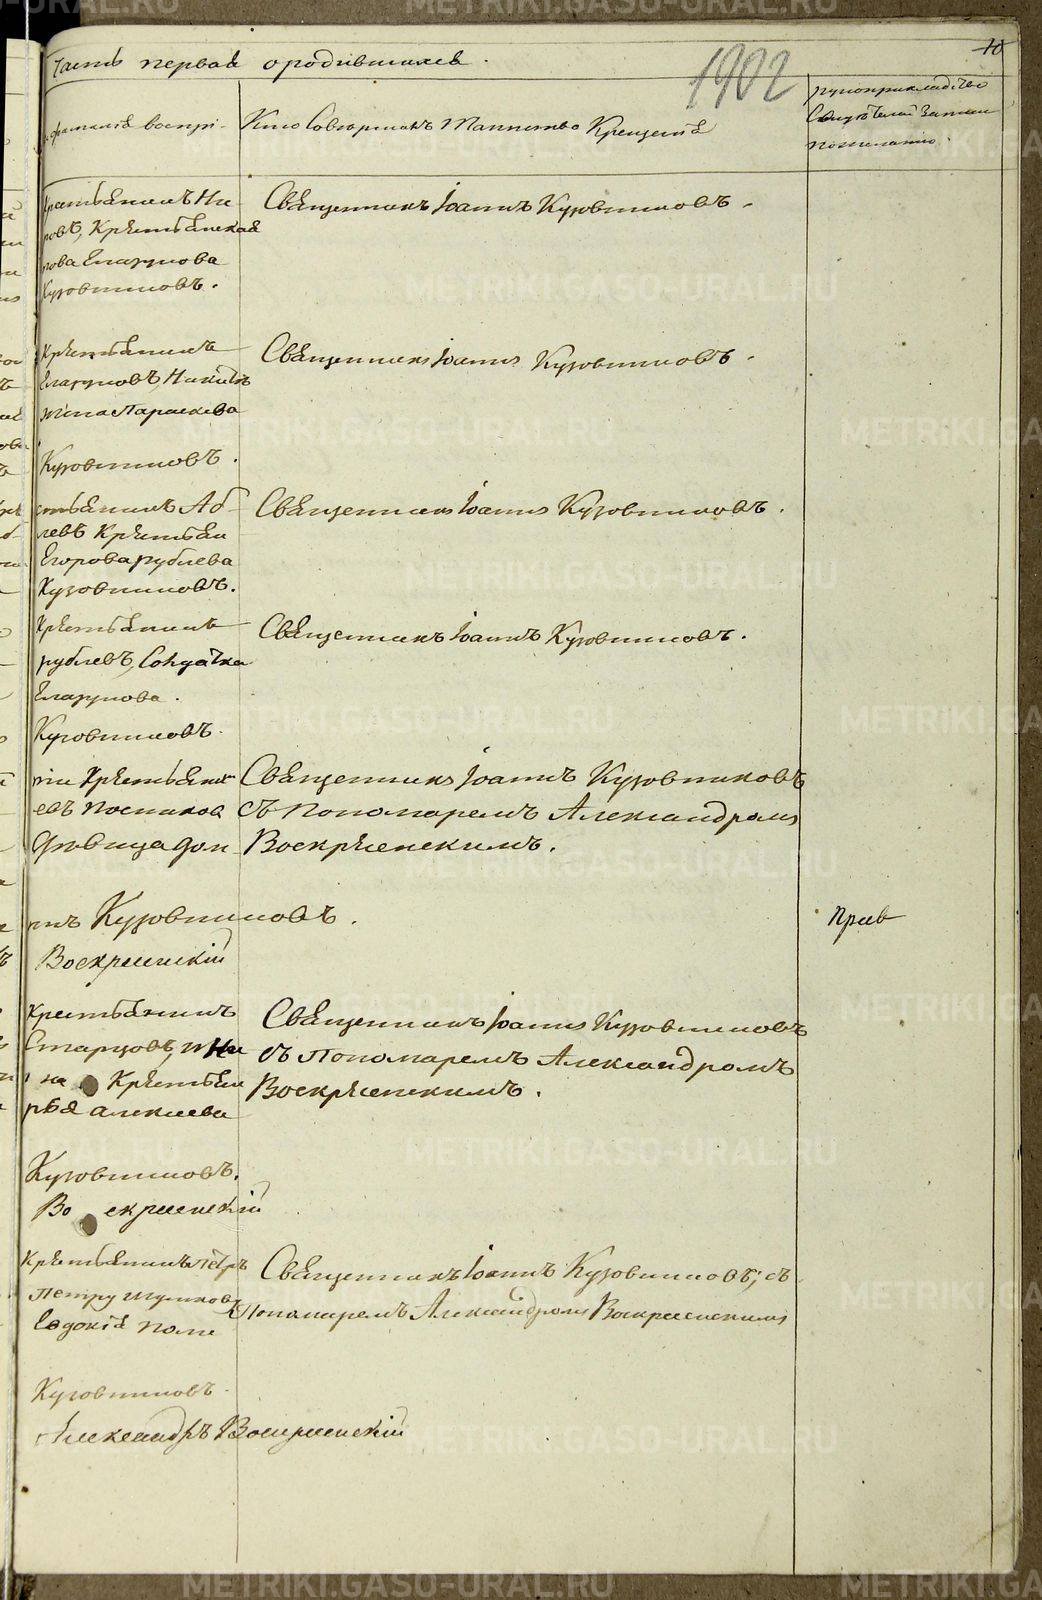 Часть первая о родившихся.
1902
10
фамилія воспрі-
Кто Совершалъ Таинство Крещенія
рукоприкладство
Свидѣтелей записи
по желанію.
Крестьянинъ Ни-
ровъ, Крестьянская
рова Елагунова
Кузовниковъ.
Священникъ Іоаннъ Кузовниковъ.
Крестьянинъ
Елагуновъ, Никит
жена Параскева
Кузовниковъ.
Священникъ Іоаннъ Кузовниковъ.
стьянинъ Аб-
левъ Крестьян
Егорова рублева
Кузовниковъ.
Священникъ Іоаннъ Кузовниковъ.
Крестьянинъ
рублевъ, Солдатка
Елагунова.
Кузовниковъ.
Священникъ Іоаннъ Кузовниковъ.
Крестьян
евъ Посников
дѣвица доч
Священникъ Іоаннъ Кузовниковъ
съ Пономаремъ Александромъ
Воскресенскимъ.
Кузовниковъ.
Воскресенскій
Прав
Крестьянинъ
Старцовъ,
на Крестьян
рья алексеева
Священникъ Іоаннъ Кузовниковъ
съ Пономаремъ Александромъ
Воскресенскимъ.
Кузовниковъ.
Во скресенскій
Крестьянинъ Петръ
Петру
Евдокія
Священникъ Іоаннъ Кузовниковъ, съ
Пономаремъ Александромъ Воскресенскимъ
Кузовниковъ.
Александръ Воскресенскій
METRIKI.GASO-URAL.RU